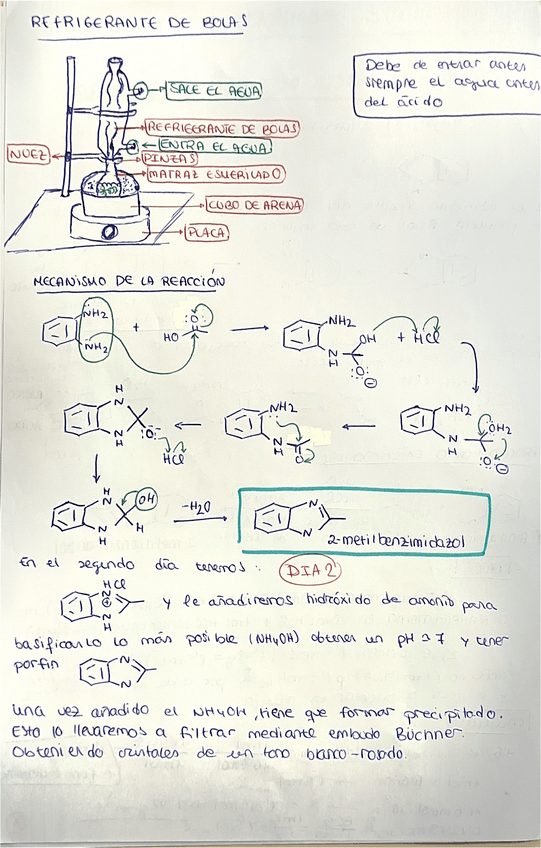 REFRIGERANTE DE BOLAS
Debe de entrar antes
siempre el agua antes
del ácido
SALE EL AGUA
REFRIGERANTE DE BOLAS
ENTRA EL AGUA
NUEZ
PINZAS
MATRAZ ESMERILADO
CUBO DE ARENA
PLACA
MECANISMO DE LA REACCIÓN
NH2
NH2
+
HO
O
NH2
N
H
OH
O
⊖
+ HCl
H
N
N
H
O
HCl
NH2
N
H
O
NH2
N
H
OH2
O
⊖
H
N
N
H
OH
H
-H2O
N
N
2-metilbenzimidazol
En el segundo día tenemos:
DIA 2
HCl
N
⊕
N
y le añadiremos hidróxido de amonio para
basificarlo lo más posible (NH4OH) obtener un pH ≥ 7 y tener
por fin
N
N
Una vez añadido el NH4OH, tiene que formar precipitado.
Esto lo llevaremos a filtrar mediante embudo Büchner.
Obteniendo cristales de un tono blanco-rosado.